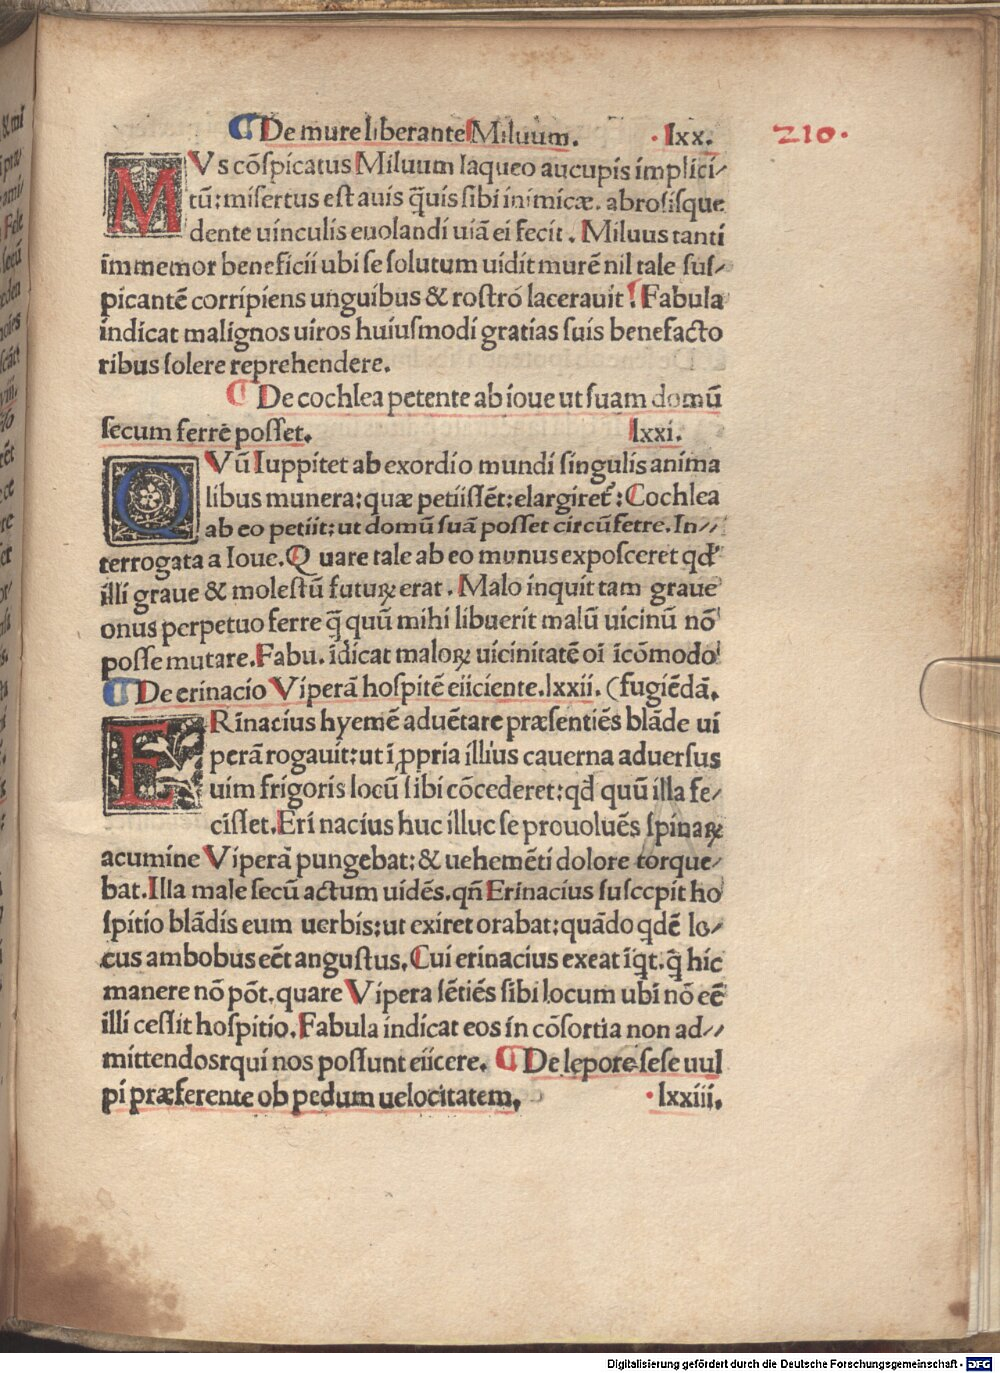 De mure liberante Miluum. .lxx. 210.
MVs cōspicatus Miluum laqueo aucupis implici/
tū: misertus est auis q̄uis sibi inimicæ. abrosisque
dente uinculis euolandi uiā ei fecit. Miluus tanti
immemor beneficii ubi se solutum uidit murē nil tale sus/
picantē corripiens unguibus & rostro lacerauit! Fabula
indicat malignos uiros huiusmodi gratias suis benefacto
ribus solere reprehendere.
De cochlea petente ab ioue ut suam domū
secum ferre posset. lxxi.
QVū Iuppitet ab exordio mundi singulis anima
libus munera: quæ petiissēt: elargiret᷑: Cochlea
ab eo petiit: ut domū suā posset circūfetre. In//
terrogata a Ioue. Q uare tale ab eo munus exposceret qđ
illi graue & molestū futuꝝ erat. Malo inquit tam graue
onus perpetuo ferre q̄ quū mihi libuerit malū uicinū nō
posse mutare. Fabu. īdicat maloꝝ uicinitatē oī īcōmodo
De erinacio Viperā hospitē eiiciente. lxxii. (fugiēdā.
ERinacius hyemē aduētare præsentiēs blāde ui
perā rogauit: ut ī ꝓpria illius cauerna aduersus
uim frigoris locū sibi cōcederet: qđ quū illa fe/
cisset. Eri nacius huc illuc se prouoluēs spinaꝝ
acumine Viperā pungebat: & uehemēti dolore torque/
bat. Illa male secū actum uidēs. qñ Erinacius suscepit ho
spitio blādis eum uerbis: ut exiret orabat: quādo qdē lo/
cus ambobus eēt angustus. Cui erinacius exeat īqt. q̄ hic
manere nō pōt. quare Vipera sētiēs sibi locum ubi nō eē
illi cessit hospitio. Fabula indicat eos in cōsortia non ad//
mittendosrqui nos possunt eiicere. De lepore sese uul
pi præferente ob pedum uelocitatem. .lxxiii.
Digitalisierung gefördert durch die Deutsche Forschungsgemeinschaft - DFG